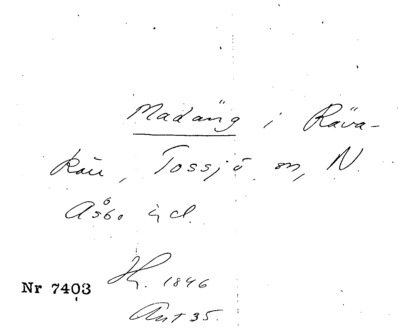 Madäng i Räva-
kärr, Tossjö sn, N
Åsbo hd.
Hg. 1846
Nr 7403
Ant 35.